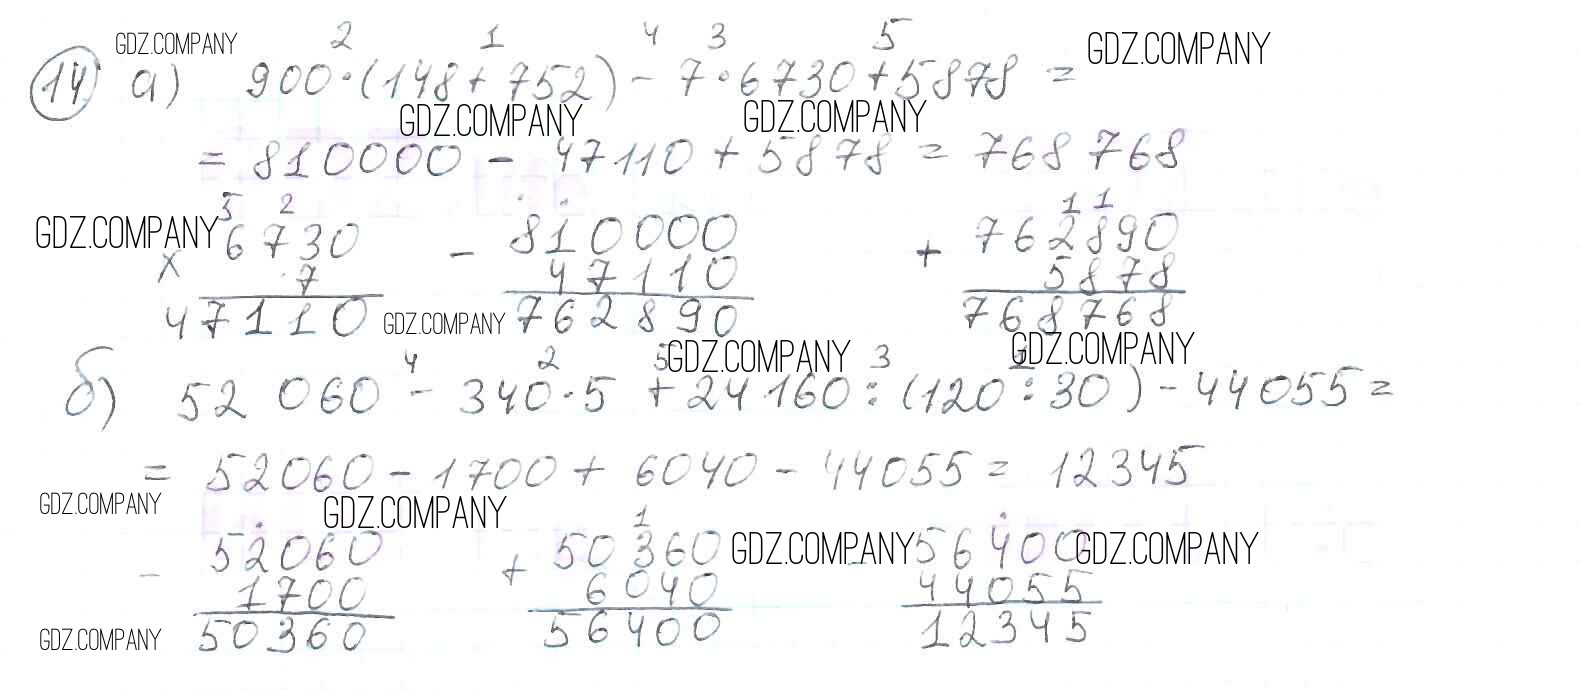 GDZ.COMPANY 2 1 4 3 5 GDZ.COMPANY
14 а) 900·(148+752)-7·6730+5878=
GDZ.COMPANY GDZ.COMPANY
=810000-47110+5878=768768
GDZ.COMPANY 5 2 1 1
6730 - 810000 + 762890
× 7 47110 5878
47110 GDZ.COMPANY 762890 768768
4 2 5 GDZ.COMPANY 3 1 GDZ.COMPANY
б) 52 060-340·5+24160:(120:30)-44055=
=52060-1700+6040-44055=12345
GDZ.COMPANY GDZ.COMPANY 1
- 52060 + 50360 GDZ.COMPANY - 56400 GDZ.COMPANY
1700 6040 44055
GDZ.COMPANY 50360 56400 12345